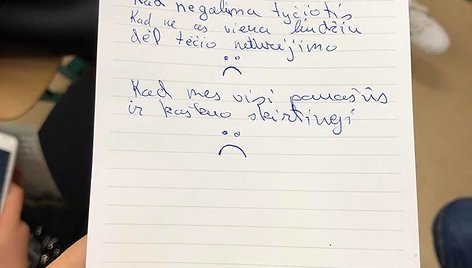 Kad negalima tyčiotis
Kad ne aš viena liūdžiu
dėl tėčio neturėjimo
Kad mes visi panašūs
ir kažkuo skirtingi